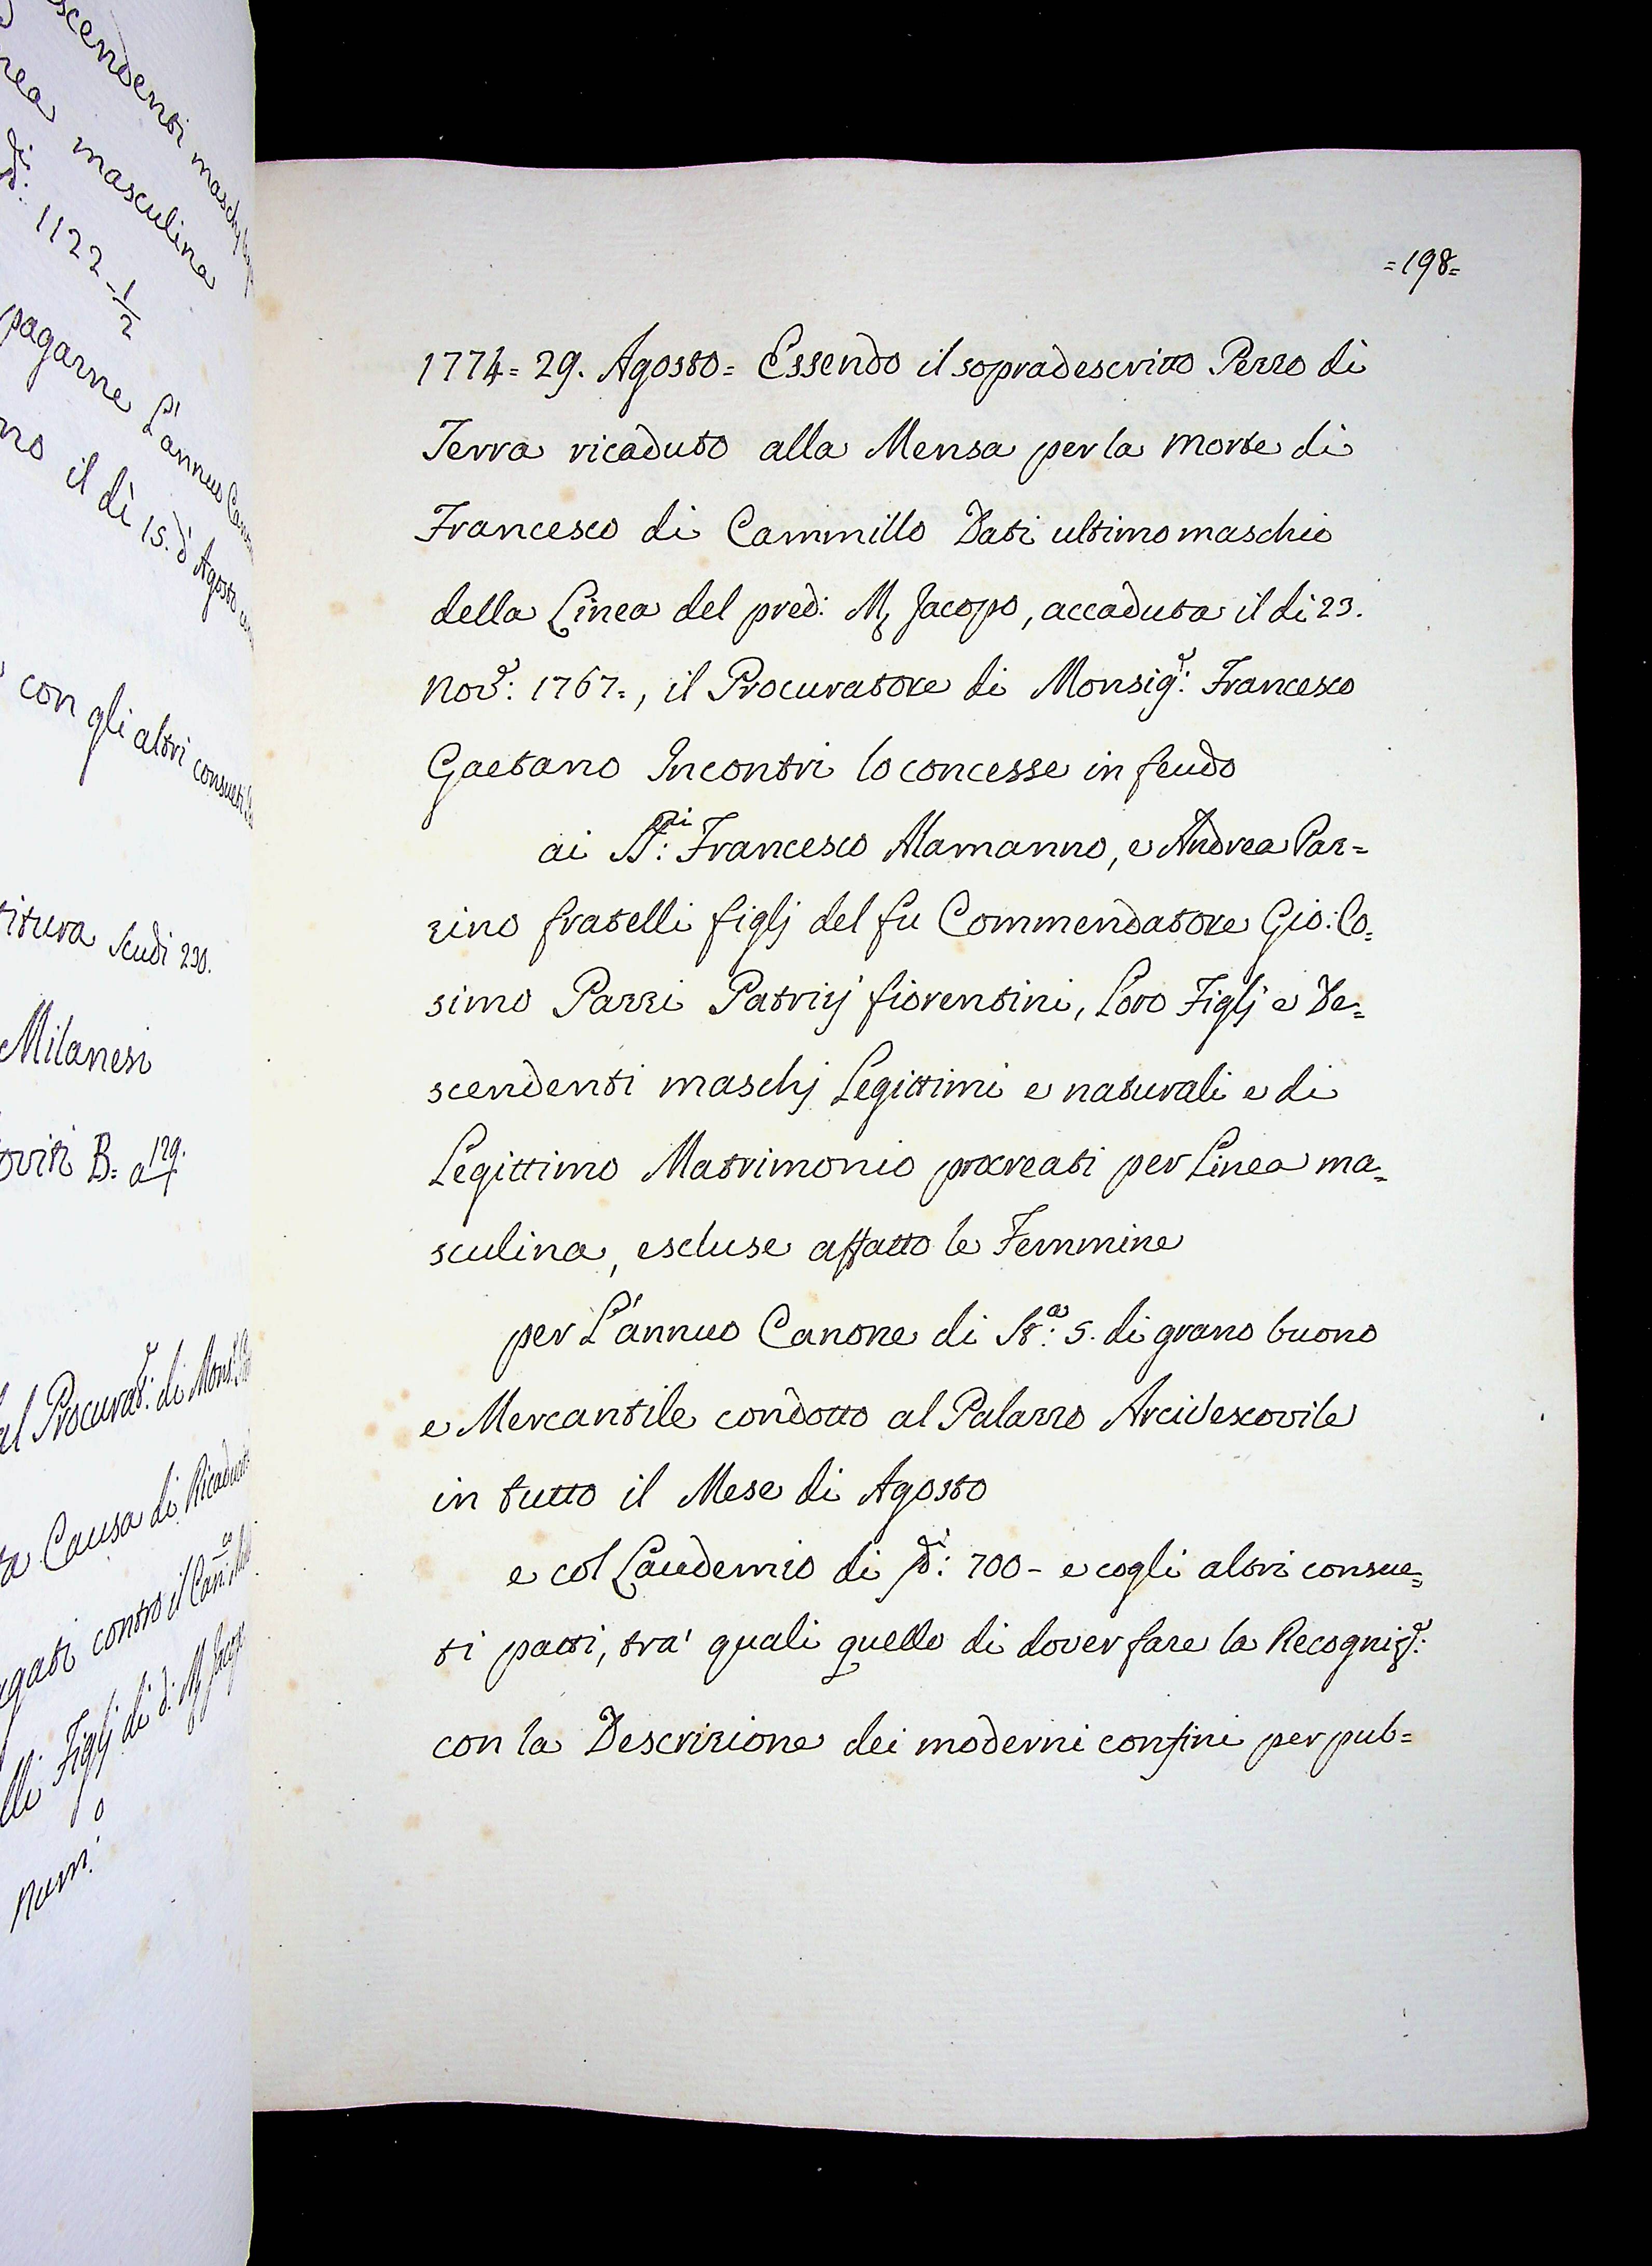 scendenti maschj
nea masculina
di: 1122 - 1/2
pagarne L'annuo
no il dì 15. d'Agosto
con gli altri consueti
titura Scudi 230.
Milanesi
oviti B= a 129.
al Procurat.e: di Mons.
ta Causa di Ricaduta
gati contro il Can.co
lli Figlj di d: Mr Jacopo
=198=
1774= 29. Agosto= Essendo il sopradescritto Pezzo di
Terra ricaduto alla Mensa per la morte di
Francesco di Cammillo Dati ultimo maschio
della Linea del pred: Mr Jacopo, accaduta il di 23.
Nov.e: 1767=, il Procuratore di Monsig.e: Francesco
Gaetano Incontri lo concesse in feudo
ai SS.ri: Francesco Alamanno, e Andrea Paz=
zino fratelli figlj del fu Commendatore Gio: Co=
simo Pazzi Patrizj fiorentini, Loro Figlj e De=
scendenti maschj Legittimi e naturali e di
Legittimo Matrimonio procreati per Linea ma=
sculina, escluse affatto le Femmine
per L'annuo Canone di St.a: 5. di grano buono
e Mercantile condotto al Palazzo Arcivescovile
in tutto il Mese di Agosto
e col Laudemio di di: 700 - e cogli altri consue=
ti patti, tra' quali quello di dover fare la Recogniz.e:
con la Descrizione dei moderni confini per pub=